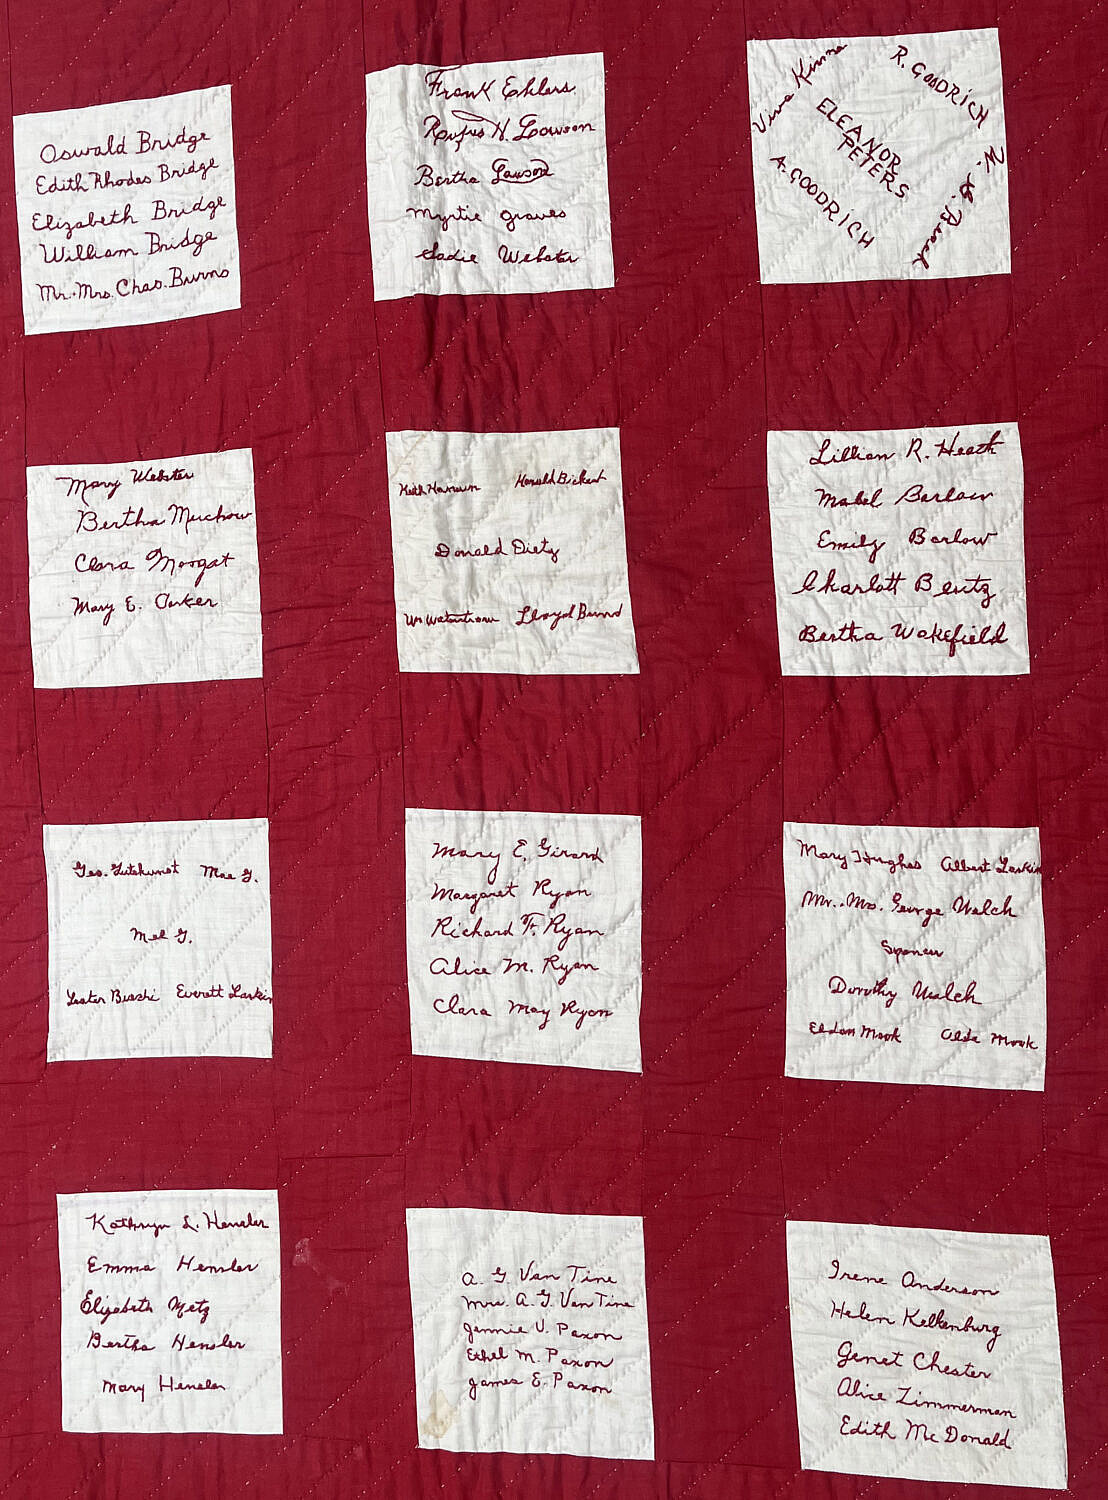 Oswald Bridge
Edith Rhodes Bridge
Elizabeth Bridge
William Bridge
Mr. Mrs. Chas. Burns
Frank Ehlers
Rufus H. Lawson
Bertha Lawson
Myrtie Graves
Sadie Webster
Viva Kinne
R. GOODRICH
ELEANOR
PETERS
A. GOODRICH
W. G. Beach
Mary Webster
Bertha Muchow
Clara Morgat
Mary E. Parker
Keith Harold Bickert
Donald Dietz
Wm Lloyd
Lillian R. Heath
Mabel Barlow
Emily Barlow
Charlott Bentz
Bertha Wakefield
Geo. Gutekunst Mae G.
Mel G.
Lester Everett Larkin
Mary E. Girard
Margaret Ryan
Richard F. Ryan
Alice M. Ryan
Clara May Ryan
Mary Hughes Albert Larkin
Mr. Mrs. George Welch
Dorothy Welch
Eldon Mook Alda Mook
Kathryn L. Hensler
Emma Hensler
Elizabeth Metz
Bertha Hensler
Mary Hensler
A. G. Van Tine
Mrs. A. G. Van Tine
Jennie V. Paxon
Ethel M. Paxon
James E. Paxon
Irene Anderson
Helen Kelkenburg
Genet Chester
Alice Zimmerman
Edith McDonald